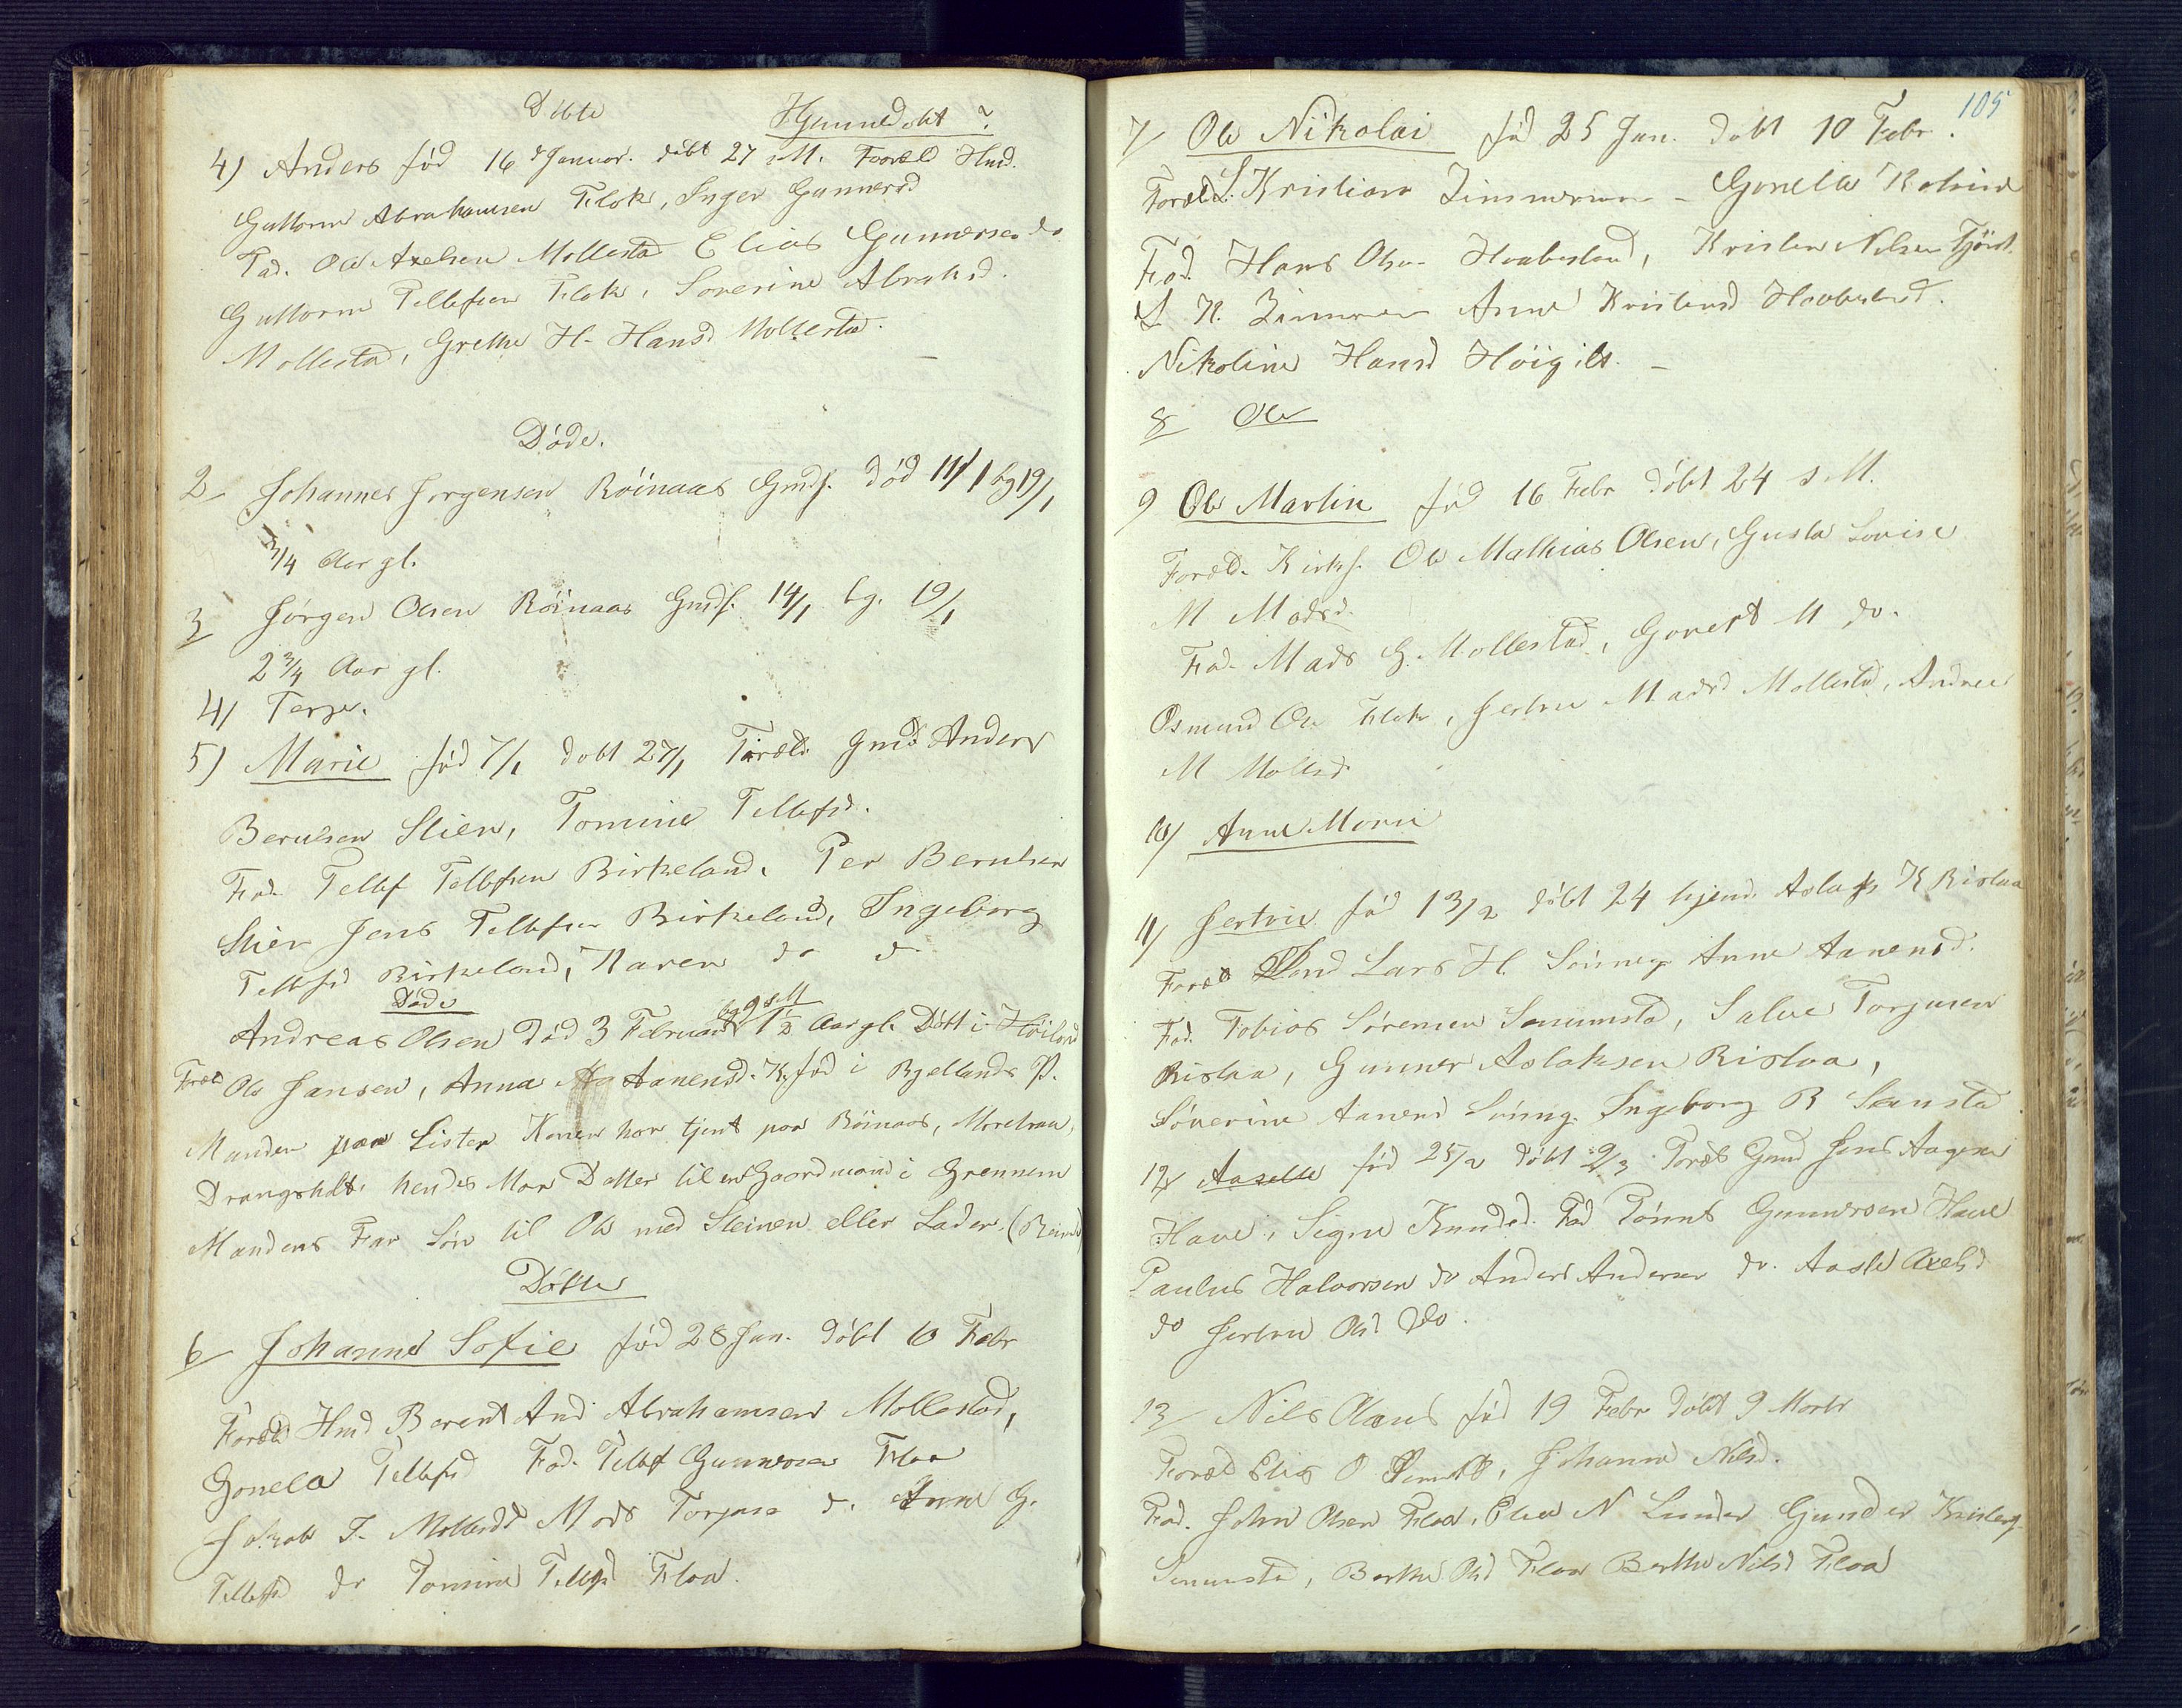 Døbte Hjemmedøbt ?
4) Anders fød 16 d Januar. døbt 27 s M. Foræld Hmd.
Guttorm Abrahamsen Flok, Inger Gunnersd
Fad. Ole Axelsen Mollestad Elias Gunnersen do
Guttorm Tellefsen Flok, Soverine Abrahsd.
Mollestad, Grethe H. Hansd Mollestad. –
Døde.
2 Johannes Jørgensen Röinaas Gmds. død 11/1 bg 19/1
3/4 Aar gl.
3 Jørgen Olsen Röinaas Gmds. 14/1 bg. 19/1
2 3/4 Aar gl.
4) Terje.
5) Marie fød 7/1 døbt 27/1 Foræld. Gmd Anders
Berulsen Stien, Tomine Tellefsd.
Fad. Tellef Tellefsen Birkeland, Per Berulsen
Stien Jens Tellefsen Birkeland, Ingeborg
Tellefsd Birkeland, Karen do do
Døde
Andreas Olsen død 3 Februar bg 9 s M 1 1/2 Aar gl. Dött i Höiland
Foræld Ole Jansen, Anna Aanensd. Kr. fød i Bjellands P.
Manden paa Lister Konen har tjent paa Röinaas, Moretraa,
Drangsholt. hendes Mor Datter til en Gaardmand i Grennem
Mandens Far Søn til Ole med Steinen eller Lader. (
Døbte
6 Johanne Sofie fød 28 Jan. døbt 10 Febr
Foræld Hmd Berent And Abrahamsen Mollestad,
Gonela Tellefsd Fad. Tellef Gunnersen Floa
Jakob T. Mollestd Mads Torjusen do. Anne G.
Tellefsd do Tomine Tellefsd Floa.
105
7/ Ole Nikolai fød 25 Jan. døbt 10 Febr.
Foræld L. Kristian Zimmermann – Gonelle Katrine
Fad. Hans Olsen Haabesland, Kristen Nilsen
L N. Zimmerm Anne Kristensd Haabesland.
Nikoline Hansd Höigilt. –
8 Ole
9 Ole Martin fød 16 Febr døbt 24 s M.
Foræld. Kirks. Ole Mathias Olsen, Gusta Lovise
M Madsd.
Fad. Mads G. Mollestad, Govert M do.
Osmund Ols Flok, Jertrue Madsd Mollestd, Andrea
M Mollsd.
10/ Anne Marie
11/ Jertrue fød 13/2 døbt 24 hjemd. Aslak K Rislaa
Foræld Lars H. Sönneg Anne Aanensd.
Fad. Tobias Sørensen Senumstad, Salve Torjusen
Rislaa, Gunner Aslaksen Rislaa,
Söverine Aanensd Sönneg. Ingeborg R Senumstad
12/ Aaselle fød 25/2 døbt 9/3 Foræld Gmd Jens Aagesen
Have, Signe Knudsd. Fad Tönnes Gunnersen Have
Paulus Halvorsen do Anders Andersen do. Aasle Axelsd
do Jertrue Olsd do.
13/ Nils Olaus fød 19 Febr døbt 9 Marts
Foræld Elias O , Johanne Nilsd.
Fad. John Olsen Floa, Elias N Lunden Gunder
Senumstad, Berthe Olsd Floa Berthe Nilsd Floa